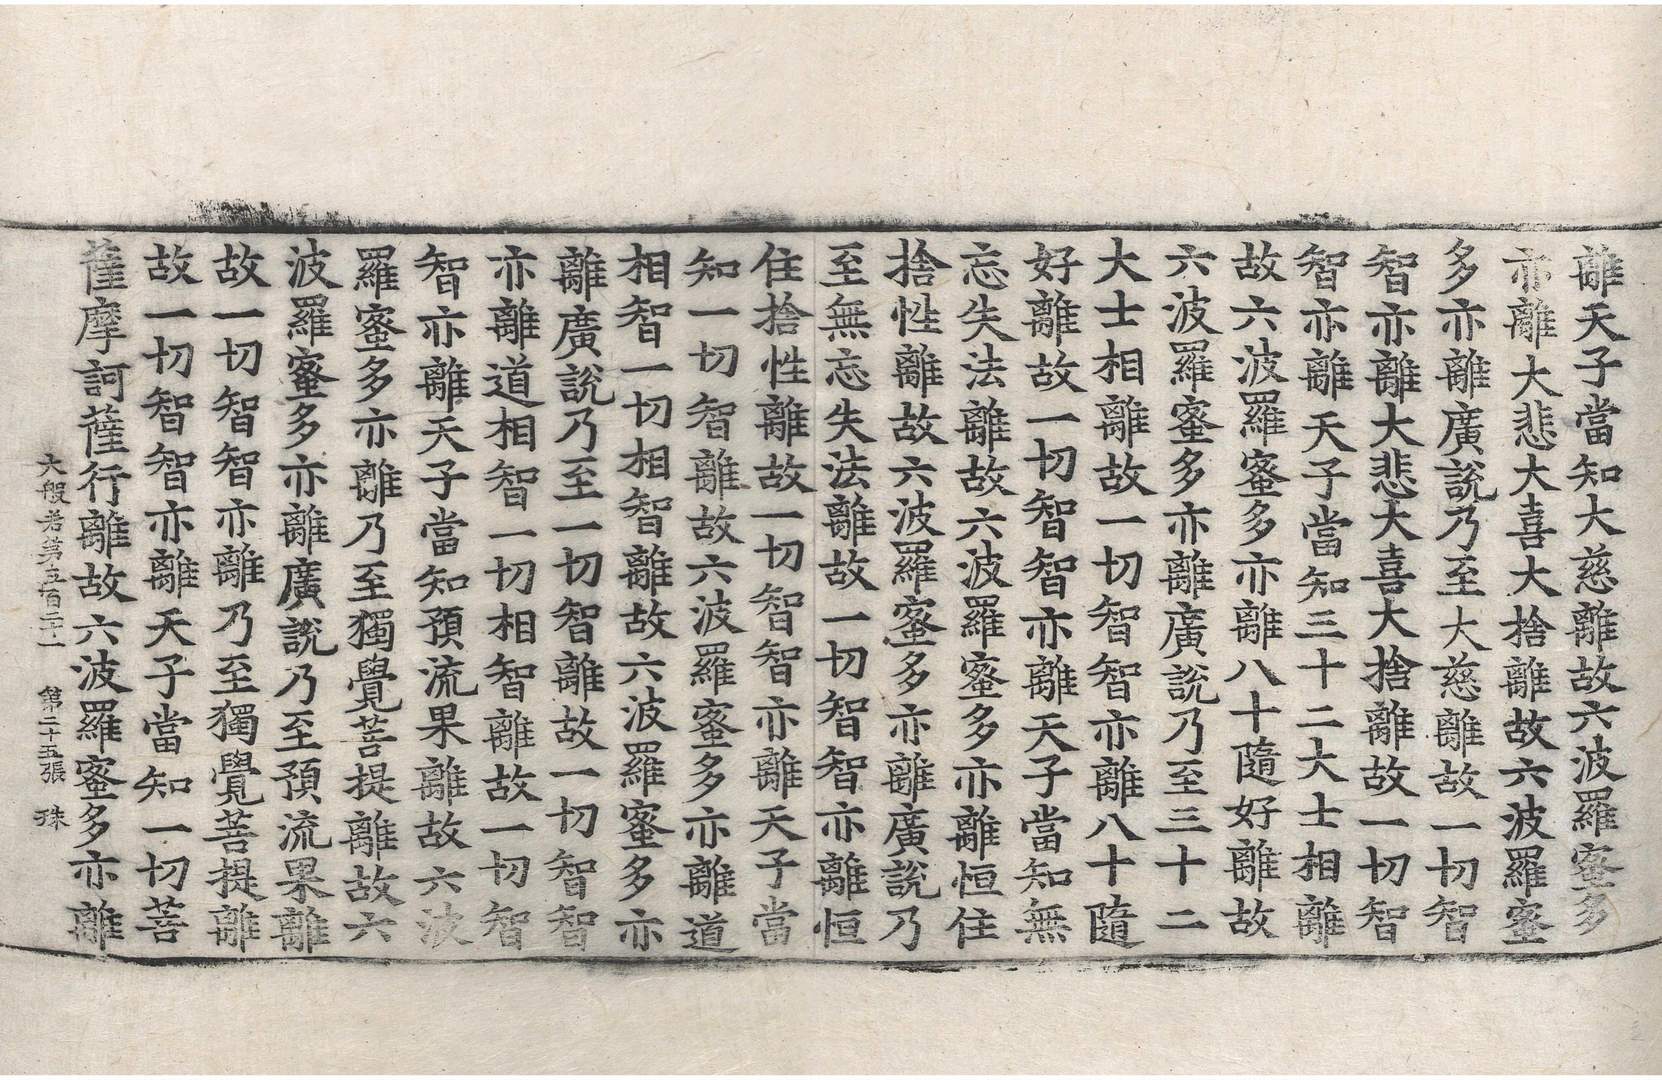 離天子當知大慈離故六波羅蜜多
亦離大悲大喜大捨離故六波羅蜜
多亦離廣說乃至大慈離故一切智
智亦離大悲大喜大捨離故一切智
智亦離天子當知三十二大士相離
故六波羅蜜多亦離八十隨好離故
六波羅蜜多亦離廣說乃至三十二
大士相離故一切智智亦離八十隨
好離故一切智智亦離天子當知無
忘失法離故六波羅蜜多亦離恒住
捨性離故六波羅蜜多亦離廣說乃
至無忘失法離故一切智智亦離恒
住捨性離故一切智智亦離天子當
知一切智離故六波羅蜜多亦離道
相智一切相智離故六波羅蜜多亦
離廣說乃至一切智離故一切智智
亦離道相智一切相智離故一切智
智亦離天子當知預流果離故六波
羅蜜多亦離乃至獨覺菩提離故六
波羅蜜多亦離廣說乃至預流果離
故一切智智亦離乃至獨覺菩提離
故一切智智亦離天子當知一切菩
薩摩訶薩行離故六波羅蜜多亦離
大般若第五百二十一 第二十五張 珠